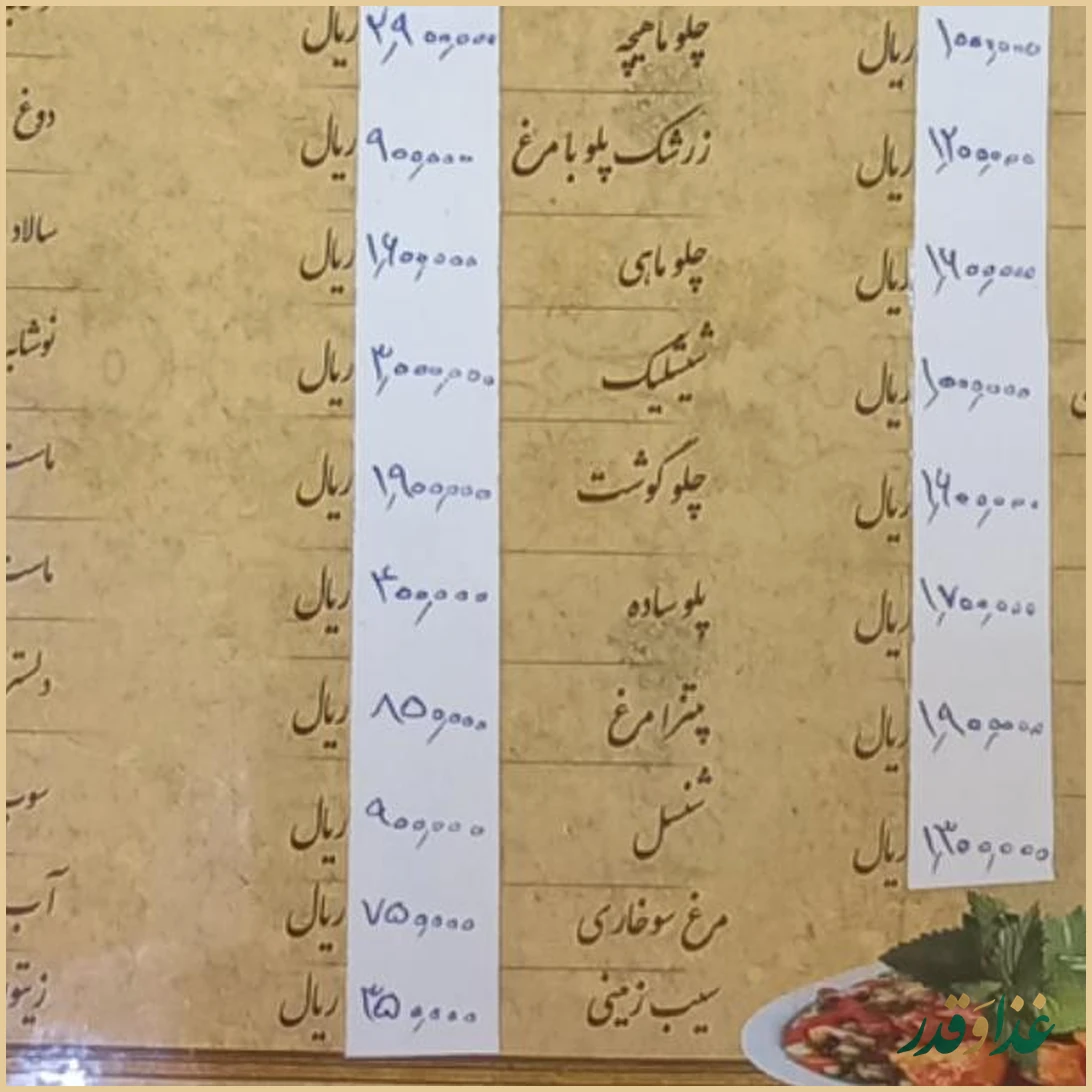 ۱۰۰۰,۰۰۰ ریال
۱,۲۰۰,۰۰۰ ریال
۱,۶۰۰,۰۰۰ ریال
۱,۰۰۰,۰۰۰ ریال
۱,۶۰۰,۰۰۰ ریال
۱,۷۰۰,۰۰۰ ریال
۱,۹۰۰,۰۰۰ ریال
۱,۳۰۰,۰۰۰ ریال
چلو ماهیچه ۲,۹۰۰,۰۰۰ ریال
زرشک پلو با مرغ ۹۰۰,۰۰۰ ریال
چلو ماهی ۱,۶۰۰,۰۰۰ ریال
شیشلیک ۳,۰۰۰,۰۰۰ ریال
چلو گوشت ۱,۹۰۰,۰۰۰ ریال
پلو ساده ۴۰۰,۰۰۰ ریال
پیتزا مرغ ۸۵۰,۰۰۰ ریال
شنسل ۹۰۰,۰۰۰ ریال
مرغ سوخاری ۷۵۰,۰۰۰ ریال
سیب زمینی ۳۵۰,۰۰۰ ریال
دوغ
سالاد
نوشابه
ماست
ماست
سوپ
آب
غذا و قدر